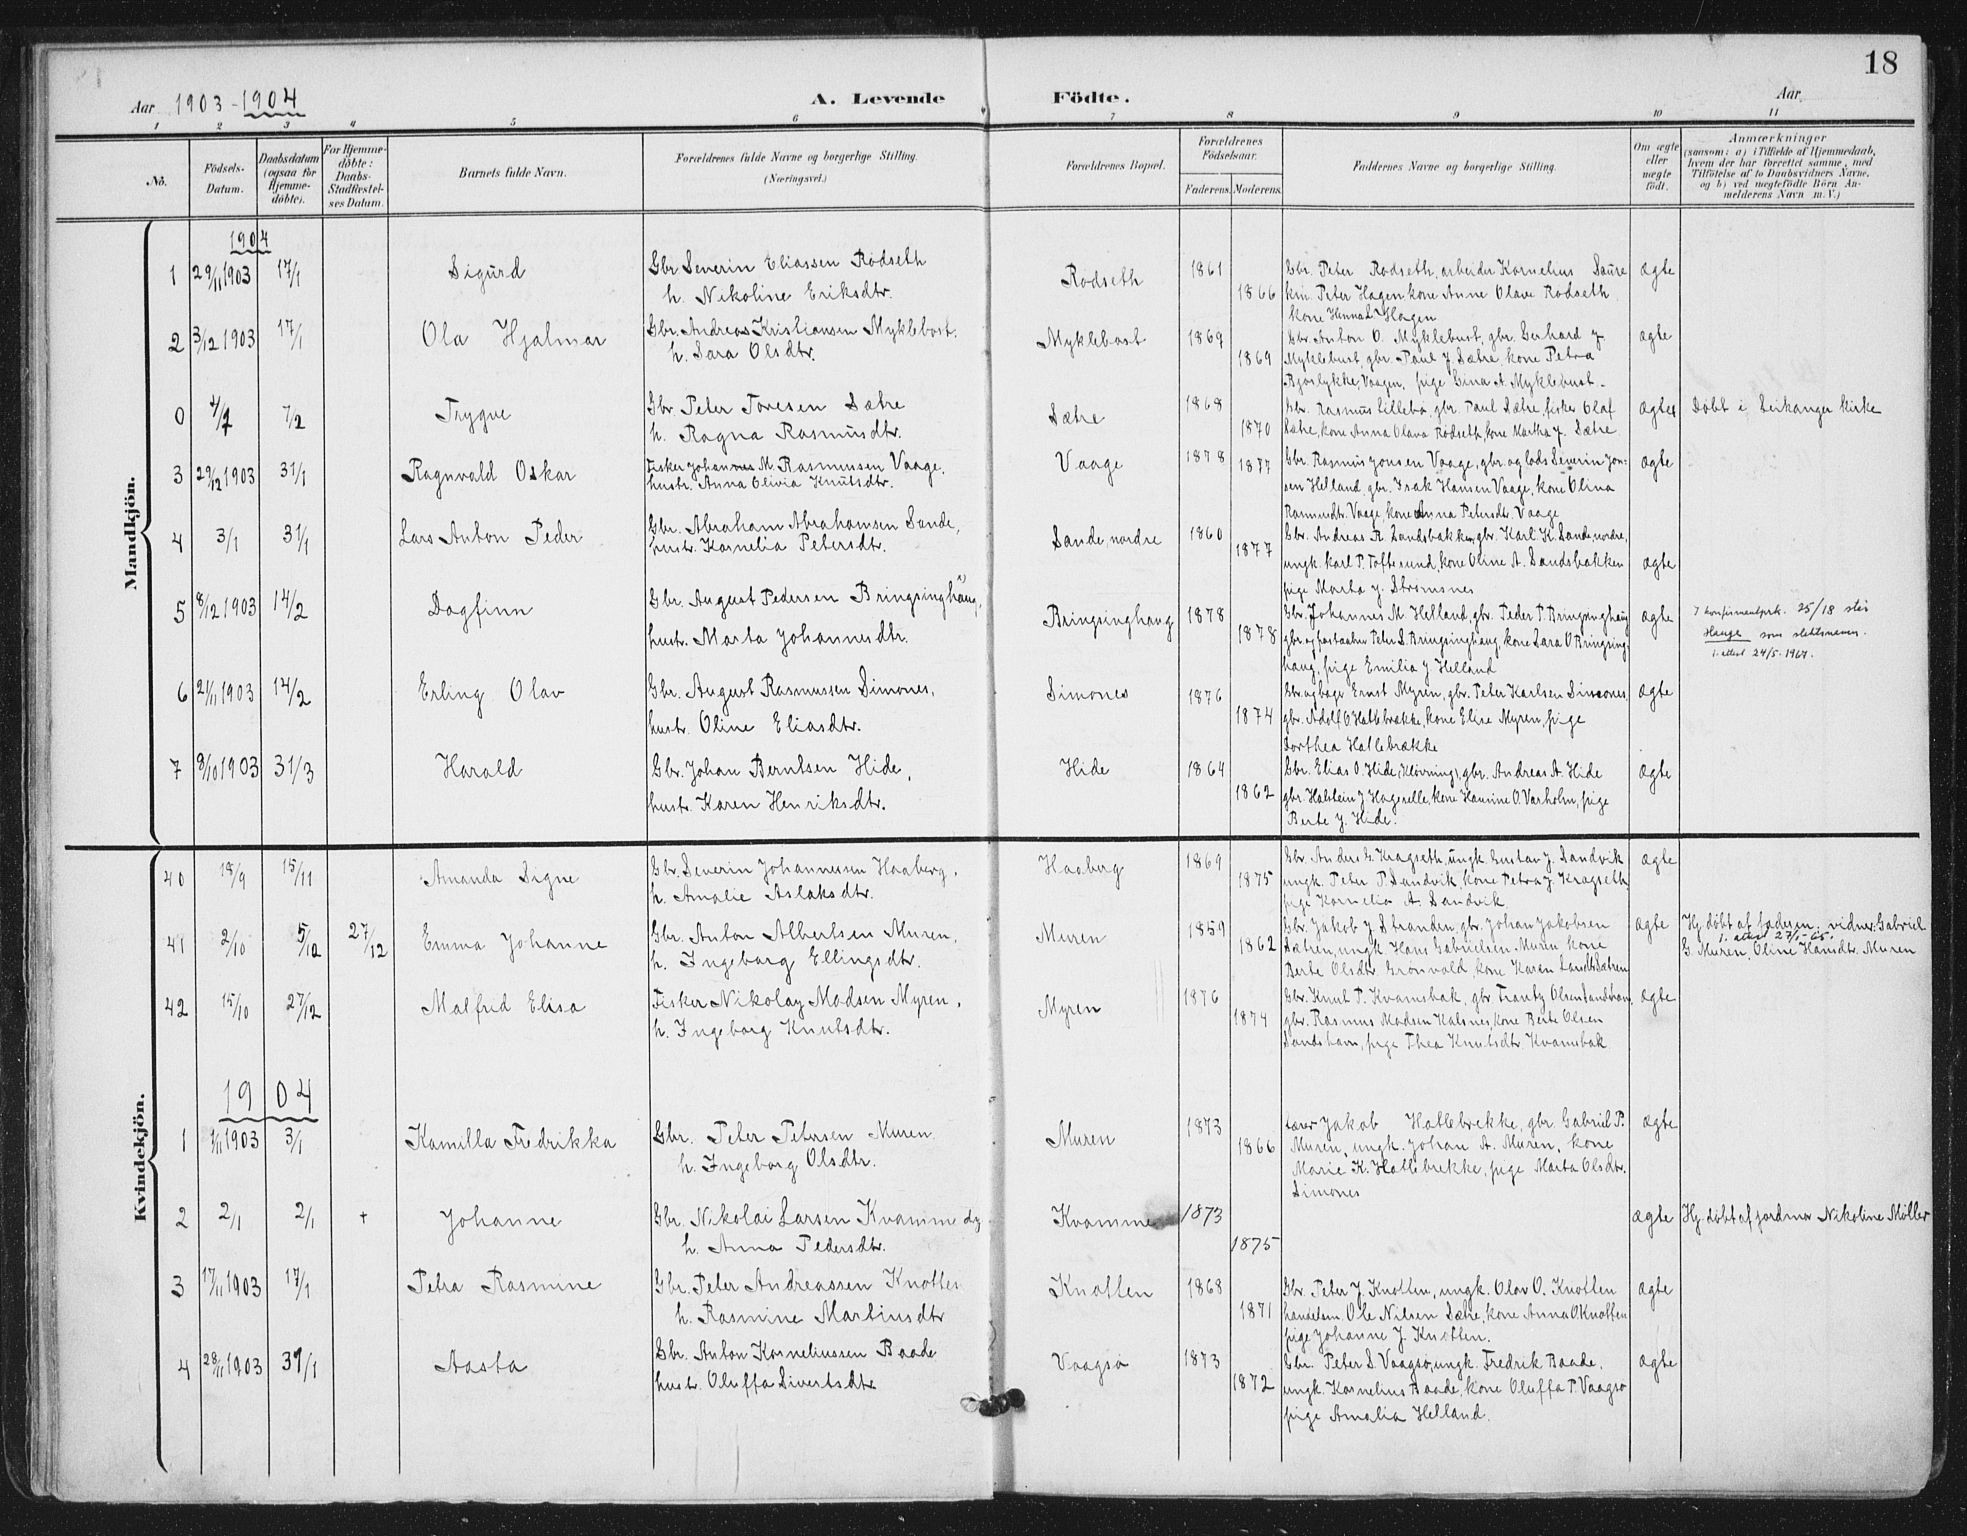 18
Aar 1903-1904 A. Levende Födte. Aar
1 2 3 4 5 6 7 8 9 10 11
No. Födsels-Datum. Daabsdatum (ogsaa for Hjemme-döbte). For Hjemme-döbte: Daabs-Stadfæstel-ses Datum. Barnets fulde Navn. Forældrenes fulde Navne og borgerlige Stilling. (Næringsvei.) Forældrenes Bopæl. Forældrenes Födselsaar. Faderens. Moderens. Faddernes Navne og borgerlige Stilling. Om ægte eller uægte födt. Anmærkninger (saasom: a) i Tilfælde af Hjemmedaab, hvem der har forrettet samme, med Tilföielse af to Daabsvidners Navne, og b) ved uægtefödte Börn An-melderens Navn m. V.)
Mandkjön.
1904
1 29/11 1903 17/1 Sigurd Gbr Severin Eliassen Rødseth Rødseth 1861 Gbr. Peter Rødseth, arbeider Kornelius Saure ægte
h. Nikoline Eriksdtr. 1866 km. Peter Hagen kone Anne Olave Rødseth
kone Hanna L. Hagen
2 3/12 1903 17/1 Ola Hjalmar Gbr. Andreas Kristiansen Myklebost. Myklebost 1869 Gbr. Anton O. Myklebust, gbr. Gerhard J. ægte
h. Sara Olsdtr. 1869 Myklebust, gbr. Paul J. Sætre kone Petra
Bjøslykke, Vaagen, pige Gina A. Myklebust.
0 4/7 7/2 Trygve Gbr. Peter Toresen Sætre Sætre 1868 Gbr. Rasmus Lillebø, gbr. Paul Sætre, fisker Olaf ægte Døbt i Leikanger kirke
h. Ragna Rasmusdtr. 1870 Sætre, kone Anna Olava Rødseth, kone Martha J. Sætre
3 29/12 1903 31/1 Ragnvald Oskar Fisker Johannes M. Rasmussen Vaage. Vaage 1878 1877 Gbr. Rasmus Jonsen Vaage, gbr. og lods Severin Jon- ægte
hustr. Anna Olivia Knutsdtr. sen Helland, gbr. Isak Hansen Vaage, kone Olina
Rasmusdtr. Vaage, kone Anna Petersdtr. Vaage
4 3/1 31/1 Lars Anton Peder Gbr. Abraham Abrahamsen Sande, Sande, nordre 1860 Gbr. Andreas R. Sandsbakken, gbr. Karl K. Sande, nordre,
hustr. Kornelia Petersdtr. 1877 ungk. Karl P. Toftesund, kone Oline A. Sandsbakken ægte
pige Marta J. Strømsnes
5 8/12 1903 14/2 Dagfinn Gbr. August Pedersen Bringsinghaug, Bringsinghaug 1878 Gbr. Johannes M. Helland, gbr. Peder P. Bringsinghaug ægte I konfirmantprt. 25/18 står
hustr. Marta Johannesdtr. 1878 gbr. og postaabn. Peter S. Bringsinghaug, kone Sara O Bringsing- Hauge som slektsnavn.
haug, pige Emilia J Helland 1. attest 24/5-1967.
6 21/11 1903 14/2 Erling Olav Gbr. August Rasmussen Simones, Simones 1876 Gbr. og bager Ernst Myren, gbr. Peter Karlsen Simones, ægte
hustr. Oline Eliasdtr. 1874 gbr. Adolf O Hattebrække, kone Elise Myren, pige
Dorthea Hattebrække
7 8/10 1903 31/3 Harald Gbr. Johan Berntsen Hide, Hide 1864 Gbr. Elias O. Hide, (Kløvning), gbr. Andreas A. Hide ægte
hustr. Karen Henriksdtr. 1862 gbr. Halstein J Hagerelle, kone Hansine O. Varholm, pige
Berte J. Hide.
Kvindekjön.
40 18/9 15/11 Amanda Signe Gbr. Severin Johannessen Haaberg. Haaberg 1869 Gbr. Anders G. Kragseth, ungk. Gustav J. Sandvik ægte
h. Amalie Aslaksdtr. 1875 ungk. Peter P. Sandvik, kone Petra J. Kragseth,
pige Kornelia A. Sandvik
41 2/10 5/12 27/12 Emma Johanne Gbr. Anton Albertsen Muren. Muren 1859 Gbr. Jakob J Stranden, gbr. Johan Jakobsen ægte Hj. døbt af faderen, vidner: Gabriel
1. attest 27/1-65.
h. Ingeborg Ellingsdtr. 1862 Sætren, ungk. Hans Gabrielsen Muren kone G. Muren, Oline Hansdtr. Muren
Berte Olsdtr. Grønvold, kone Karen Sætren
42 15/10 27/12 Malfrid Elisa Fisker Nikolay Madsen Myren. Myren 1876 Gbr. Knut P. Kvamsbak, gbr. Frantz Olsen Sandshavn, ægte
h. Ingeborg Knutsdtr. 1874 gbr. Rasmus Madsen Kalsnes, kone Berte Olsen
Sandshavn, pige Thea Knutsdtr. Kvamsbak
1904
1 1/11 1903 3/1 Kamilla Fredrikka Gbr. Peter Petersen Muren. Muren 1873 Lærer Jakob Hattebrekke, gbr. Gabriel P. ægte
h. Ingeborg Olsdtr. 1866 Muren, ungk. Johan A. Muren, kone
Marie K. Hattebrekke, pige Marta Olsdtr.
Simones
2 2/1 2/1 + Johanne Gbr. Nikolai Larsen Kvamme dy Kvamme 1873 ægte Hj. døbt af jordmor Nikoline Møller
h. Anna Pedersdtr. 1875
3 17/11 1903 17/1 Petra Rasmine Gbr. Peter Andreassen Knotten Knotten 1868 Gbr. Peter J. Knotten, ungk. Olav O. Knotten ægte
h. Rasmine Martinusdtr 1871 handelsm. Ole Nilsen Sætre, kone Anna O Knotten
pige Johanne J. Knotten.
4 28/11 1903 31/1 Aasta Gbr. Anton Korneliussen Baade Vaagsø 1873 Gbr. Peter S. Vaagsø, ungk. Fredrik Baade, ægte
hustr. Oluffa Sivertsdtr. 1872 ungk. Kornelius Baade, kone Oluffa P. Vaagsø
pige Amalia Helland.